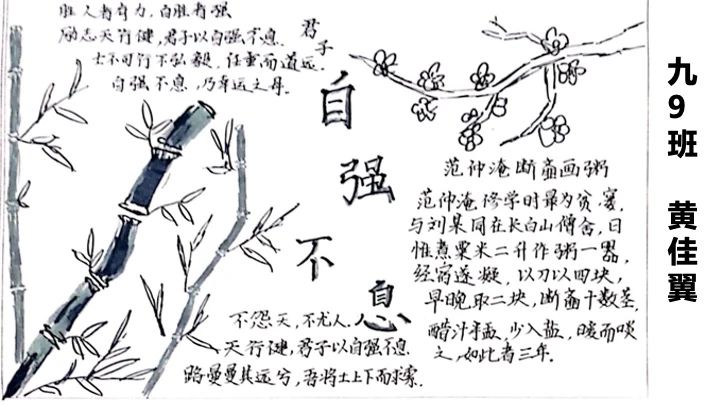 胜人者有力,自胜者强
励志天行健,君子以自强不息.
士不可行不弘毅,任重而道远.
自强不息,乃幸运之母.
君子
自强不息
范仲淹断齑画粥
范仲淹修学时最为贫窭,
与刘某同在长白山僧舍,日
惟煮粟米二升作粥一器,
经宿遂凝,以刀以四块,
早晚取二块,断齑十数茎,
醋汁半盂,少入盐,暖而啖
之,如此者三年.
不怨天,不尤人.
天行健,君子以自强不息
路曼曼其远兮,吾将士上下而求索.
九9班 黄佳翼